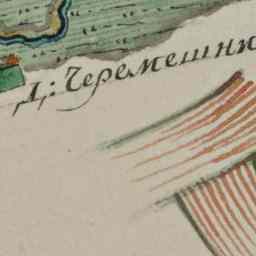 Д: Черемешни